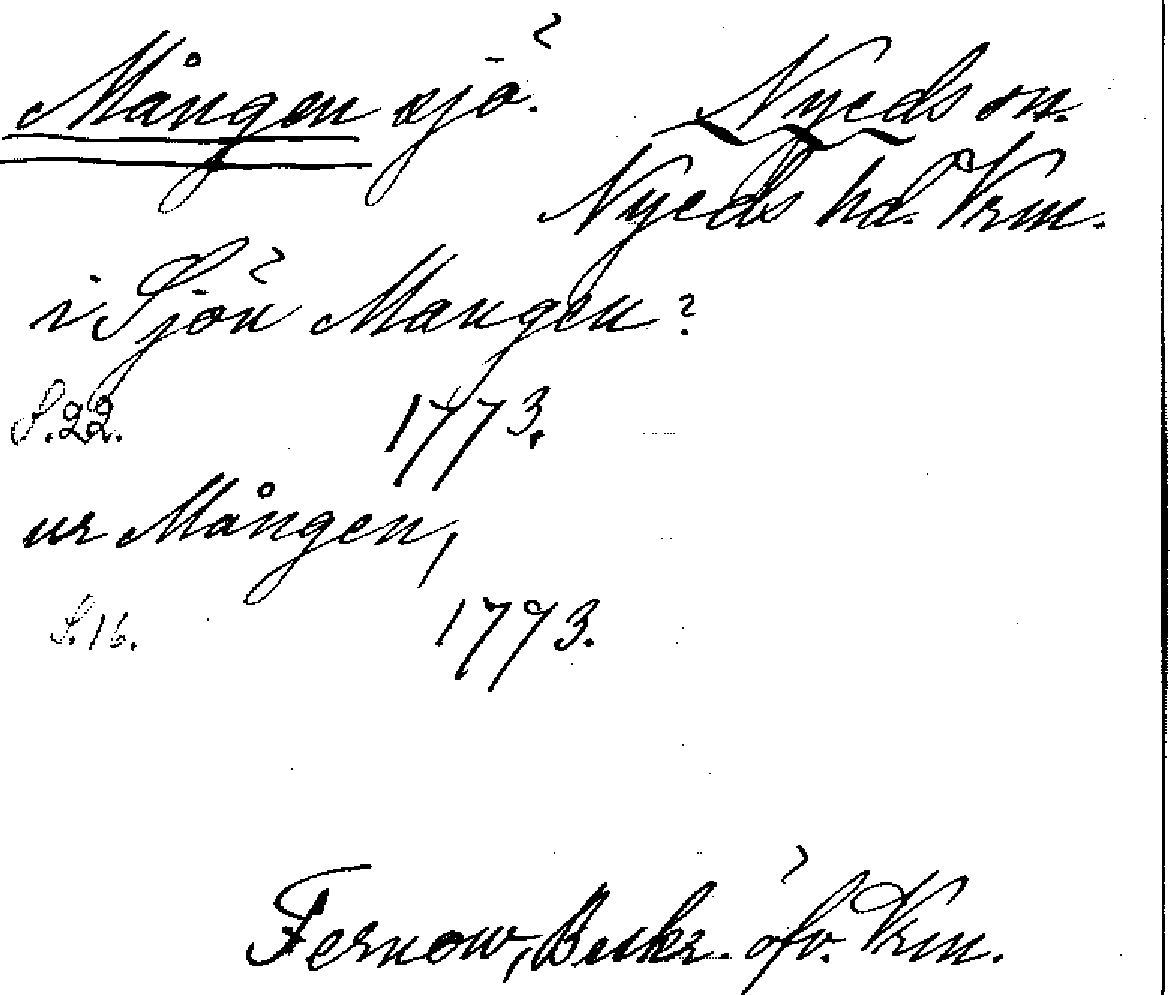 Mången sjö. Nyeds sn.
Nyeds hd. Vrm.
i Sjön Mangen?
S. 22. 1773.
ur Mången,
S. 16. 1773.
Fernow, Beskr. öfv. Vrm.